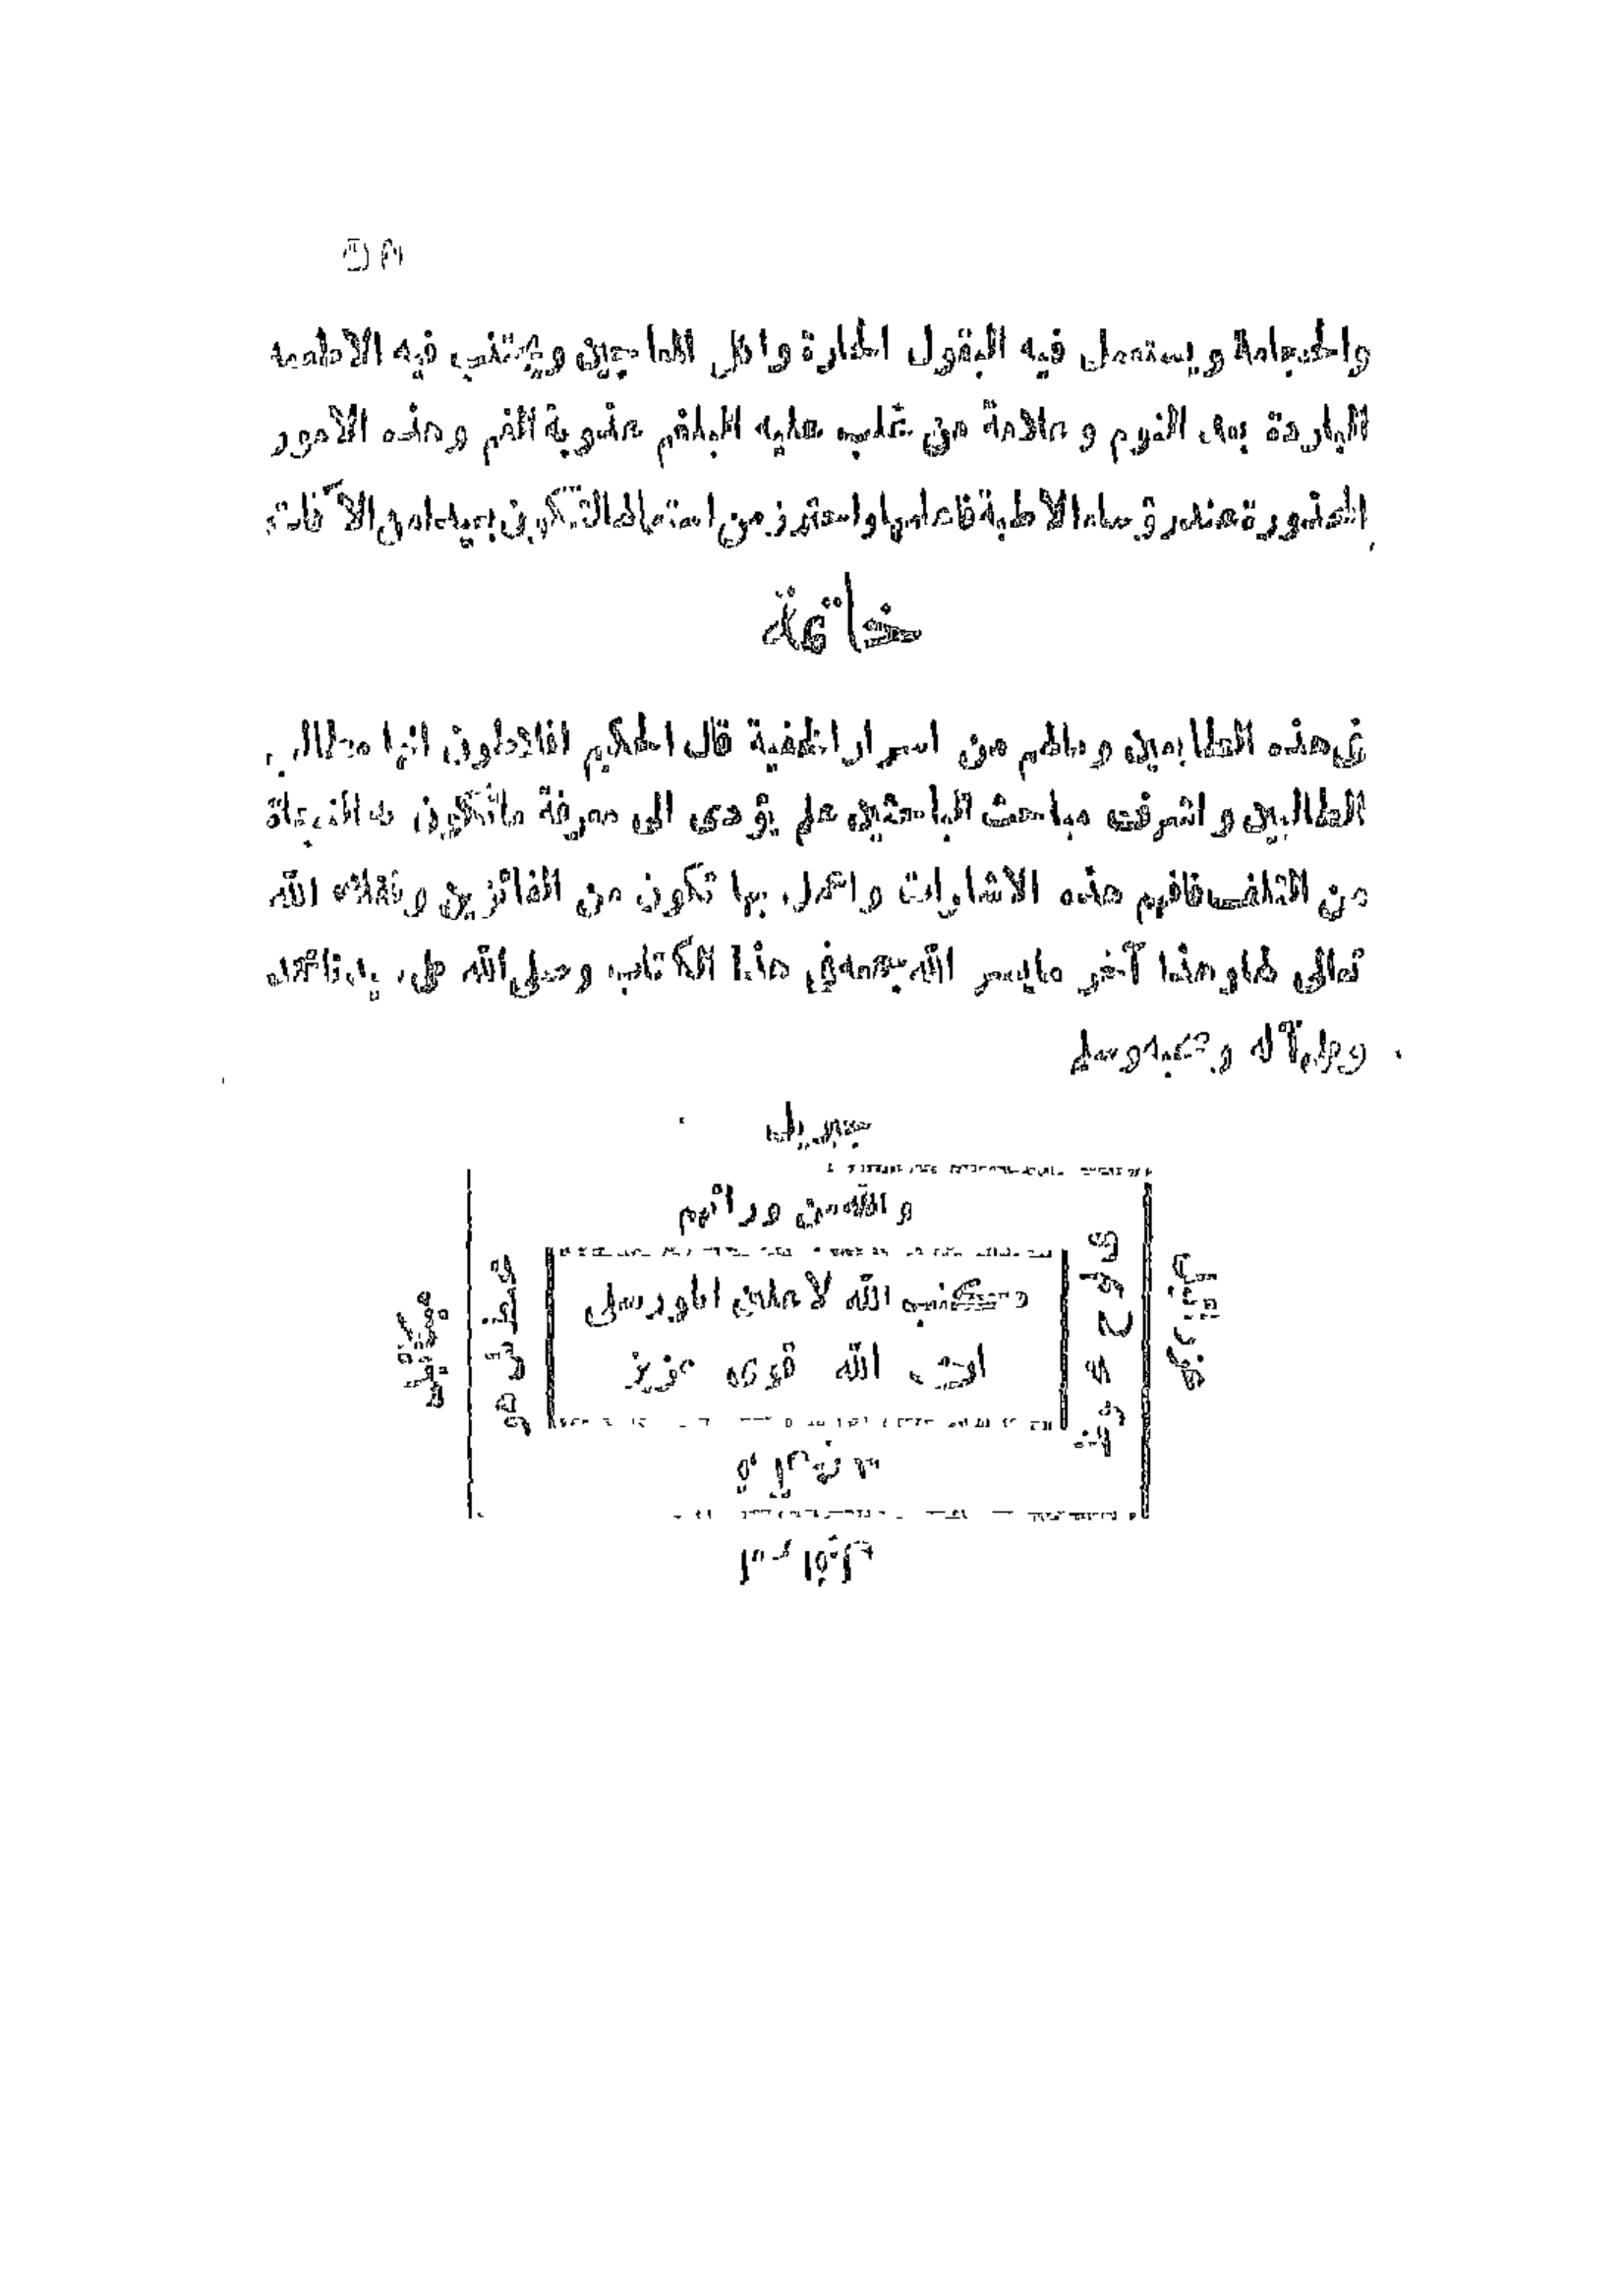 والحجامة ويستعمل فيه البقول الحارة واكل المعاجين ويجتنب فيه الاطعمة
الباردة بعد النوم و علامة من غلب عليه البلغم عذوبة الفم وهذه الامور
عند رؤساء الاطبة فاعلمها واحترز من استعمالها لتكون بعيدا من الآفات
خاتمة
فى هذه وما لهم من اسرار الخفية قال الحكيم افلاطون انها مطالب
الطالبين و اشرف مباحث الباحثين علم يؤدى الى معرفة ما تكون به النجاة
من التلف فافهم هذه الاشارات واعمل بها تكون من الفائزين وفقك الله
تعالى لها وهذا آخر ما يسر الله بجمعه فى هذا الكتاب وصلى الله على سيدنا محمد
وعلى آله وصحبه وسلم
جبريل
والله من ورائهم
كتب الله لاغلبن انا ورسلى
ان الله قوى عزيز
ميكائيل